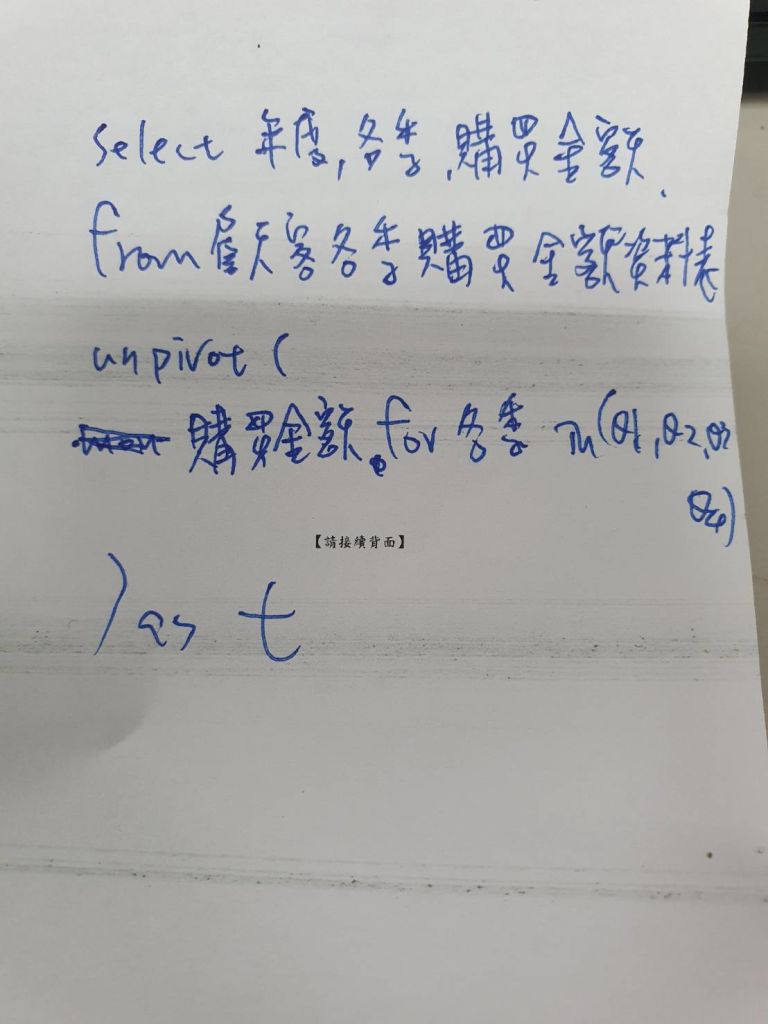 select 年度,各季,購買金額
from 顧客各季購買金額資料表
unpivot (
購買金額 for 各季 in(Q1,Q2,Q3
Q4)
【請接續背面】
) as t